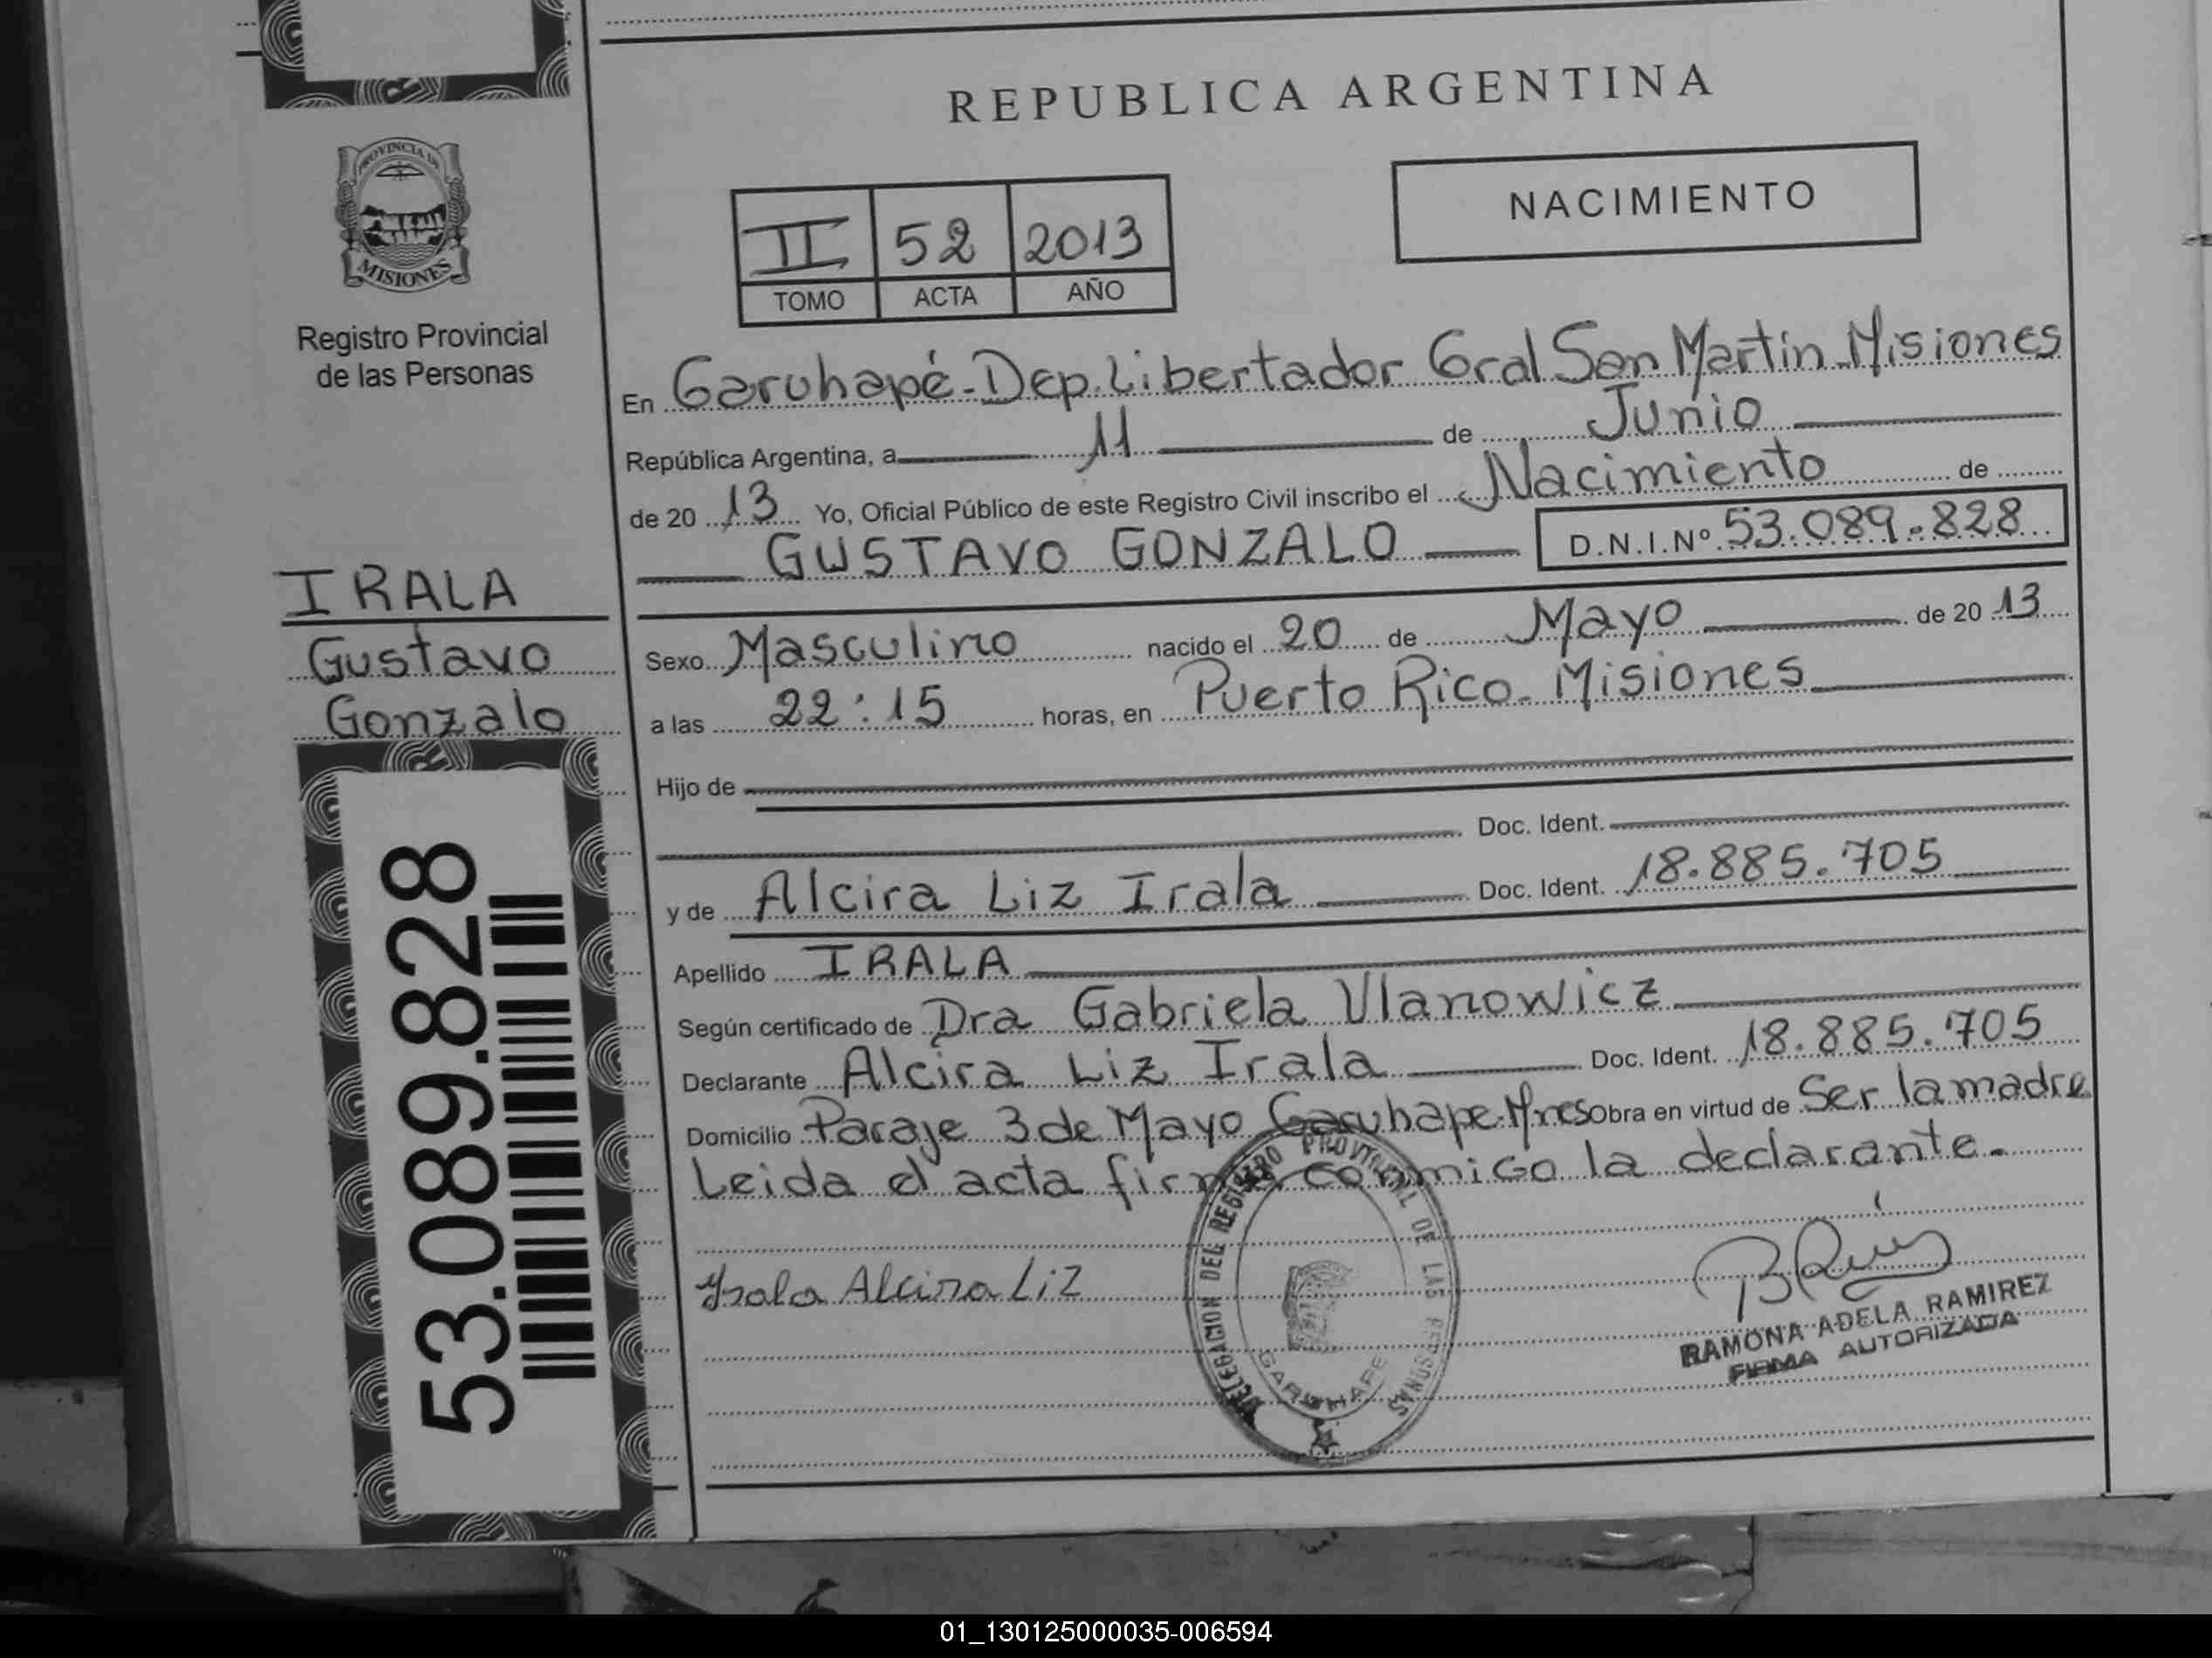 REPUBLICA ARGENTINA
NACIMIENTO
II 52 2013
TOMO ACTA AÑO
PROVINCIA DE
MISIONES
Registro Provincial
de las Personas
En Garuhapé-Dep. Libertador Gral San Martín-Misiones
República Argentina, a 11 de Junio
de 20 13 Yo, Oficial Público de este Registro Civil inscribo el Nacimiento de
GUSTAVO GONZALO D.N.I.Nº 53.089.828
IRALA
Gustavo
Gonzalo
Sexo Masculino nacido el 20 de Mayo de 20 13
a las 22:15 horas, en Puerto Rico-Misiones
Hijo de
Doc. Ident.
y de Alcira Liz Irala Doc. Ident. 18.885.705
Apellido IRALA
Según certificado de Dra Gabriela Vlanowicz
Declarante Alcira Liz Irala Doc. Ident. 18.885.705
Domicilio Paraje 3 de Mayo Garuhape-Mnes Obra en virtud de Ser la madre
Leida el acta firma conmigo la declarante.-
Irala Alcira Liz
DELEGACION DEL REGISTRO PROVINCIAL DE LAS PERSONAS
GARUHAPE
RAMONA ADELA RAMIREZ
FIRMA AUTORIZADA
53.089.828
01_130125000035-006594